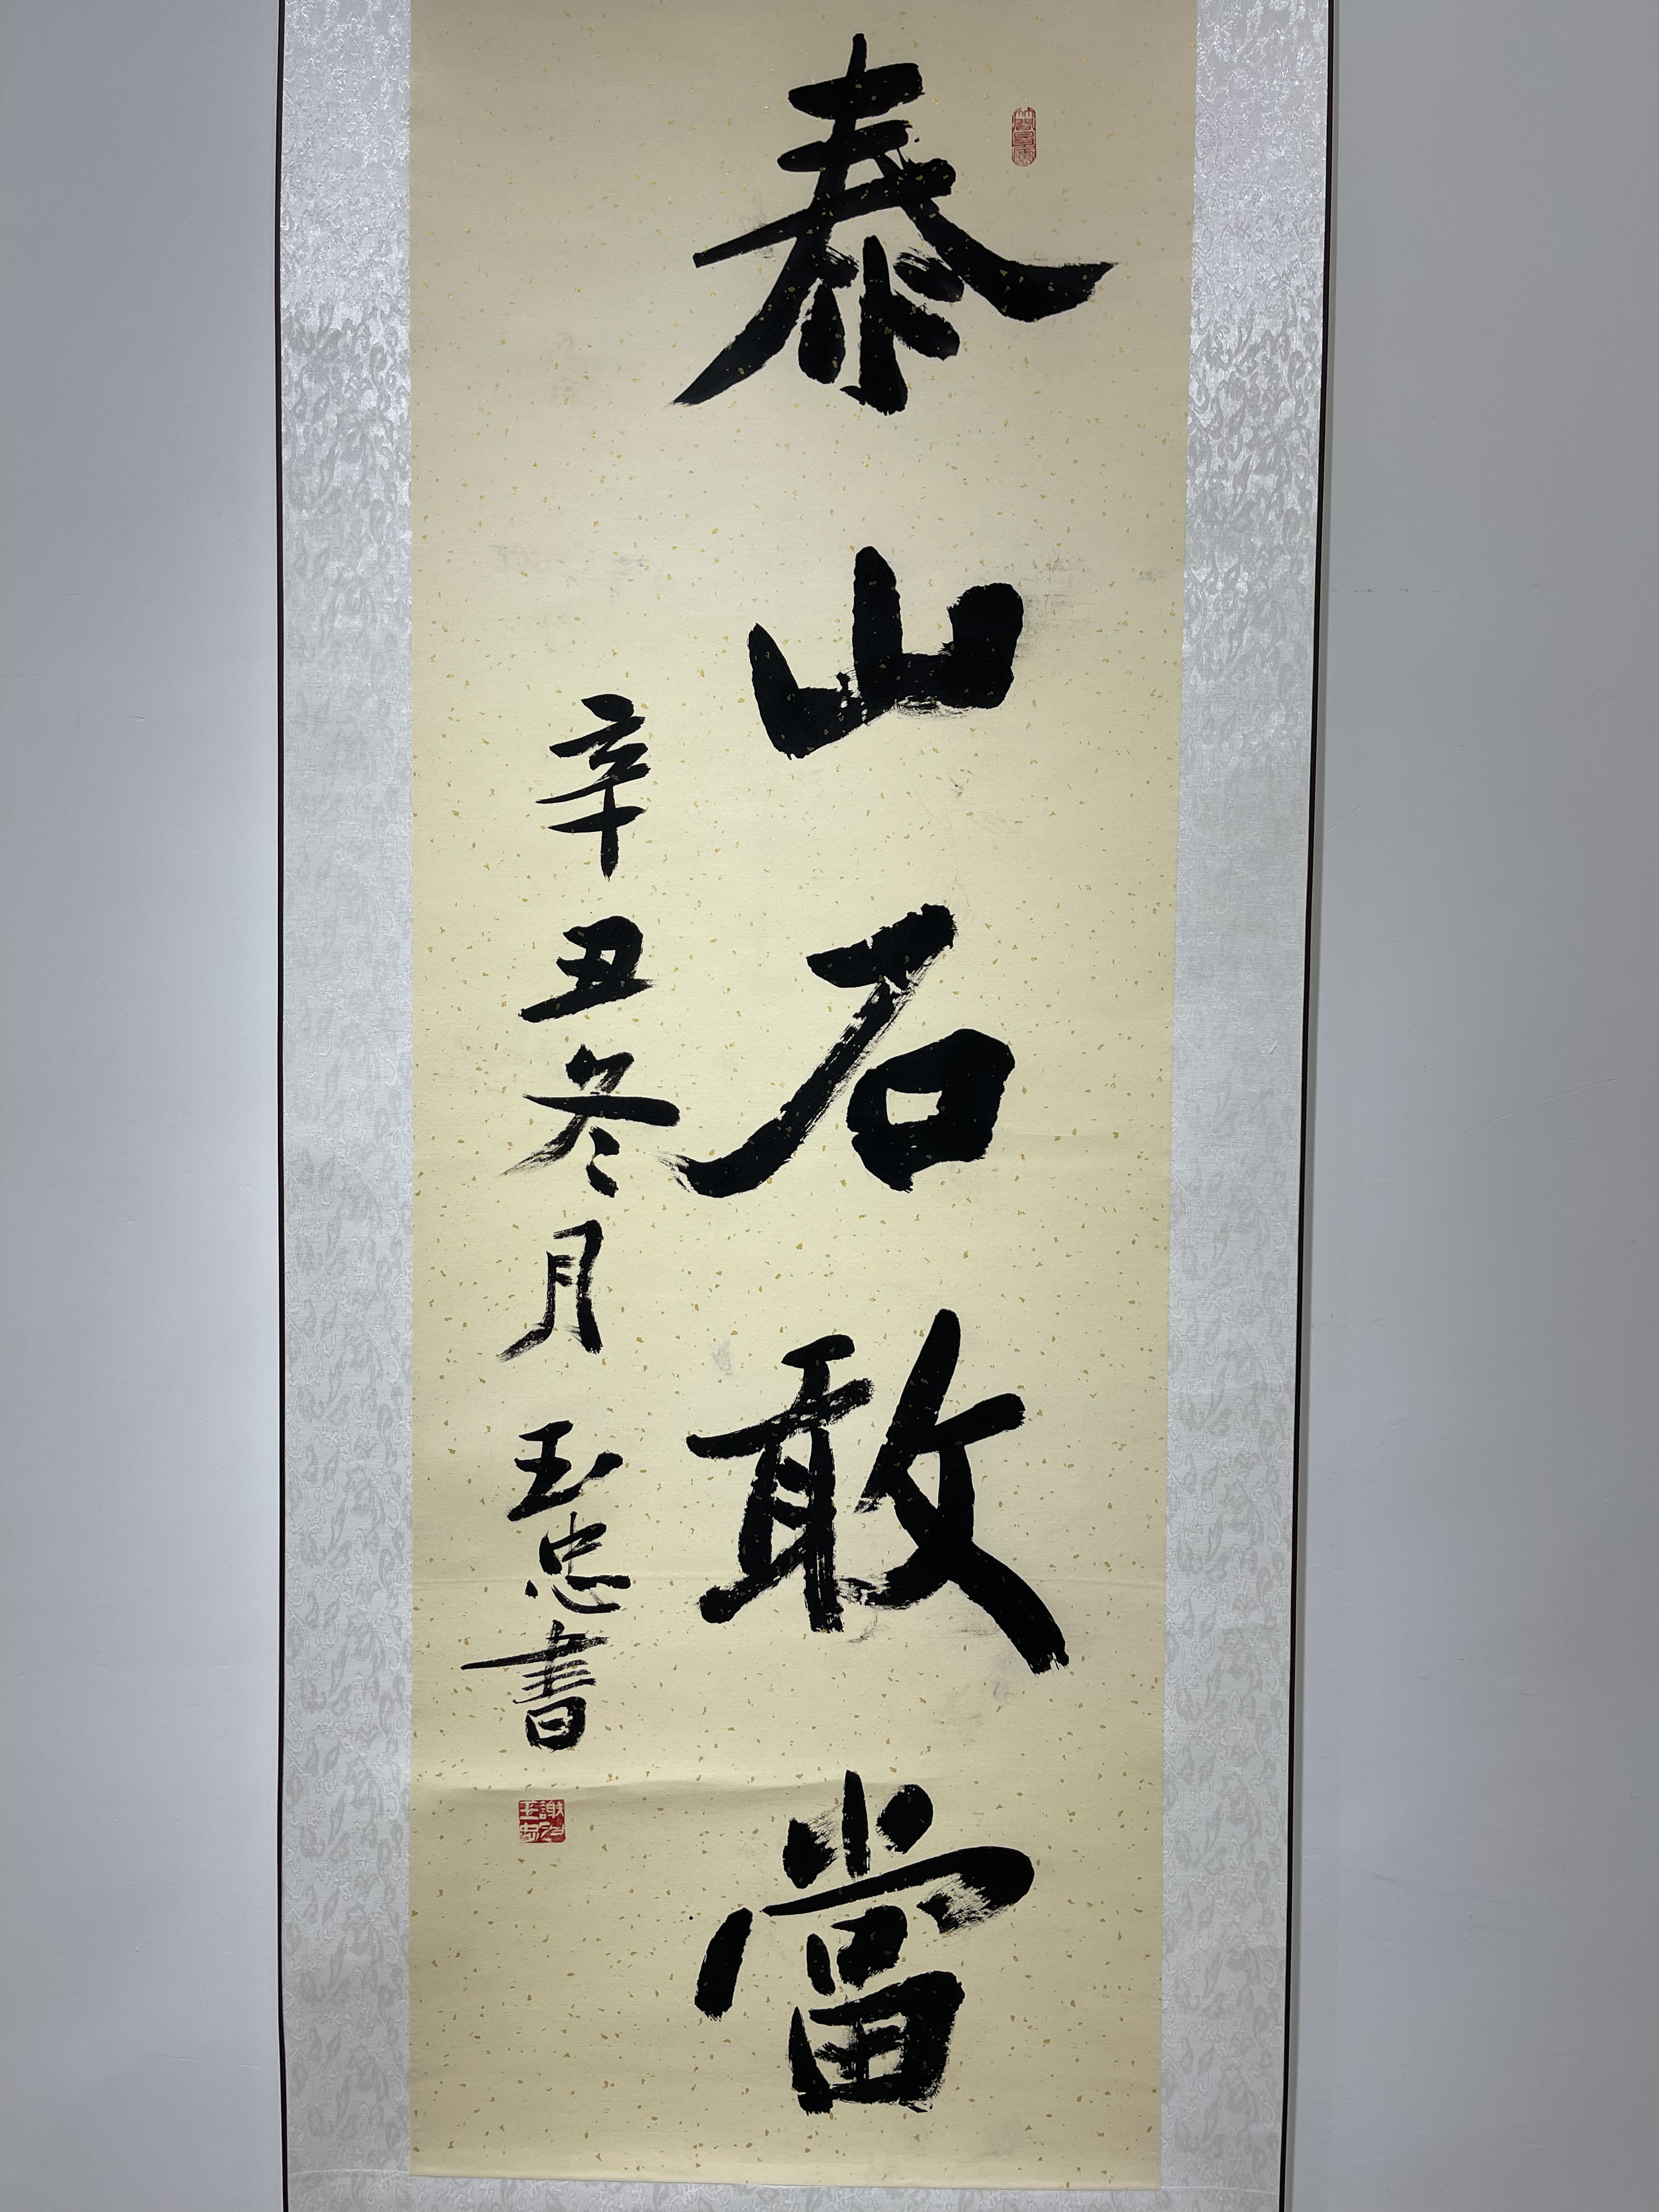 泰山石敢當
辛丑冬月玉忠書